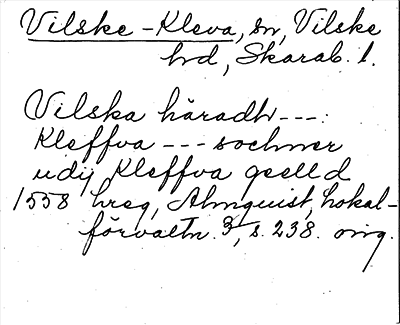 Vilske-Kleva, sn, Vilske
hd, Skarab. l.
Vilska häradh ---:
Kleffva --- sochner
udij Kleffva geselld
1558 hreg, Almquist, Lokal-
förvaltn. 3, s. 238. orig.